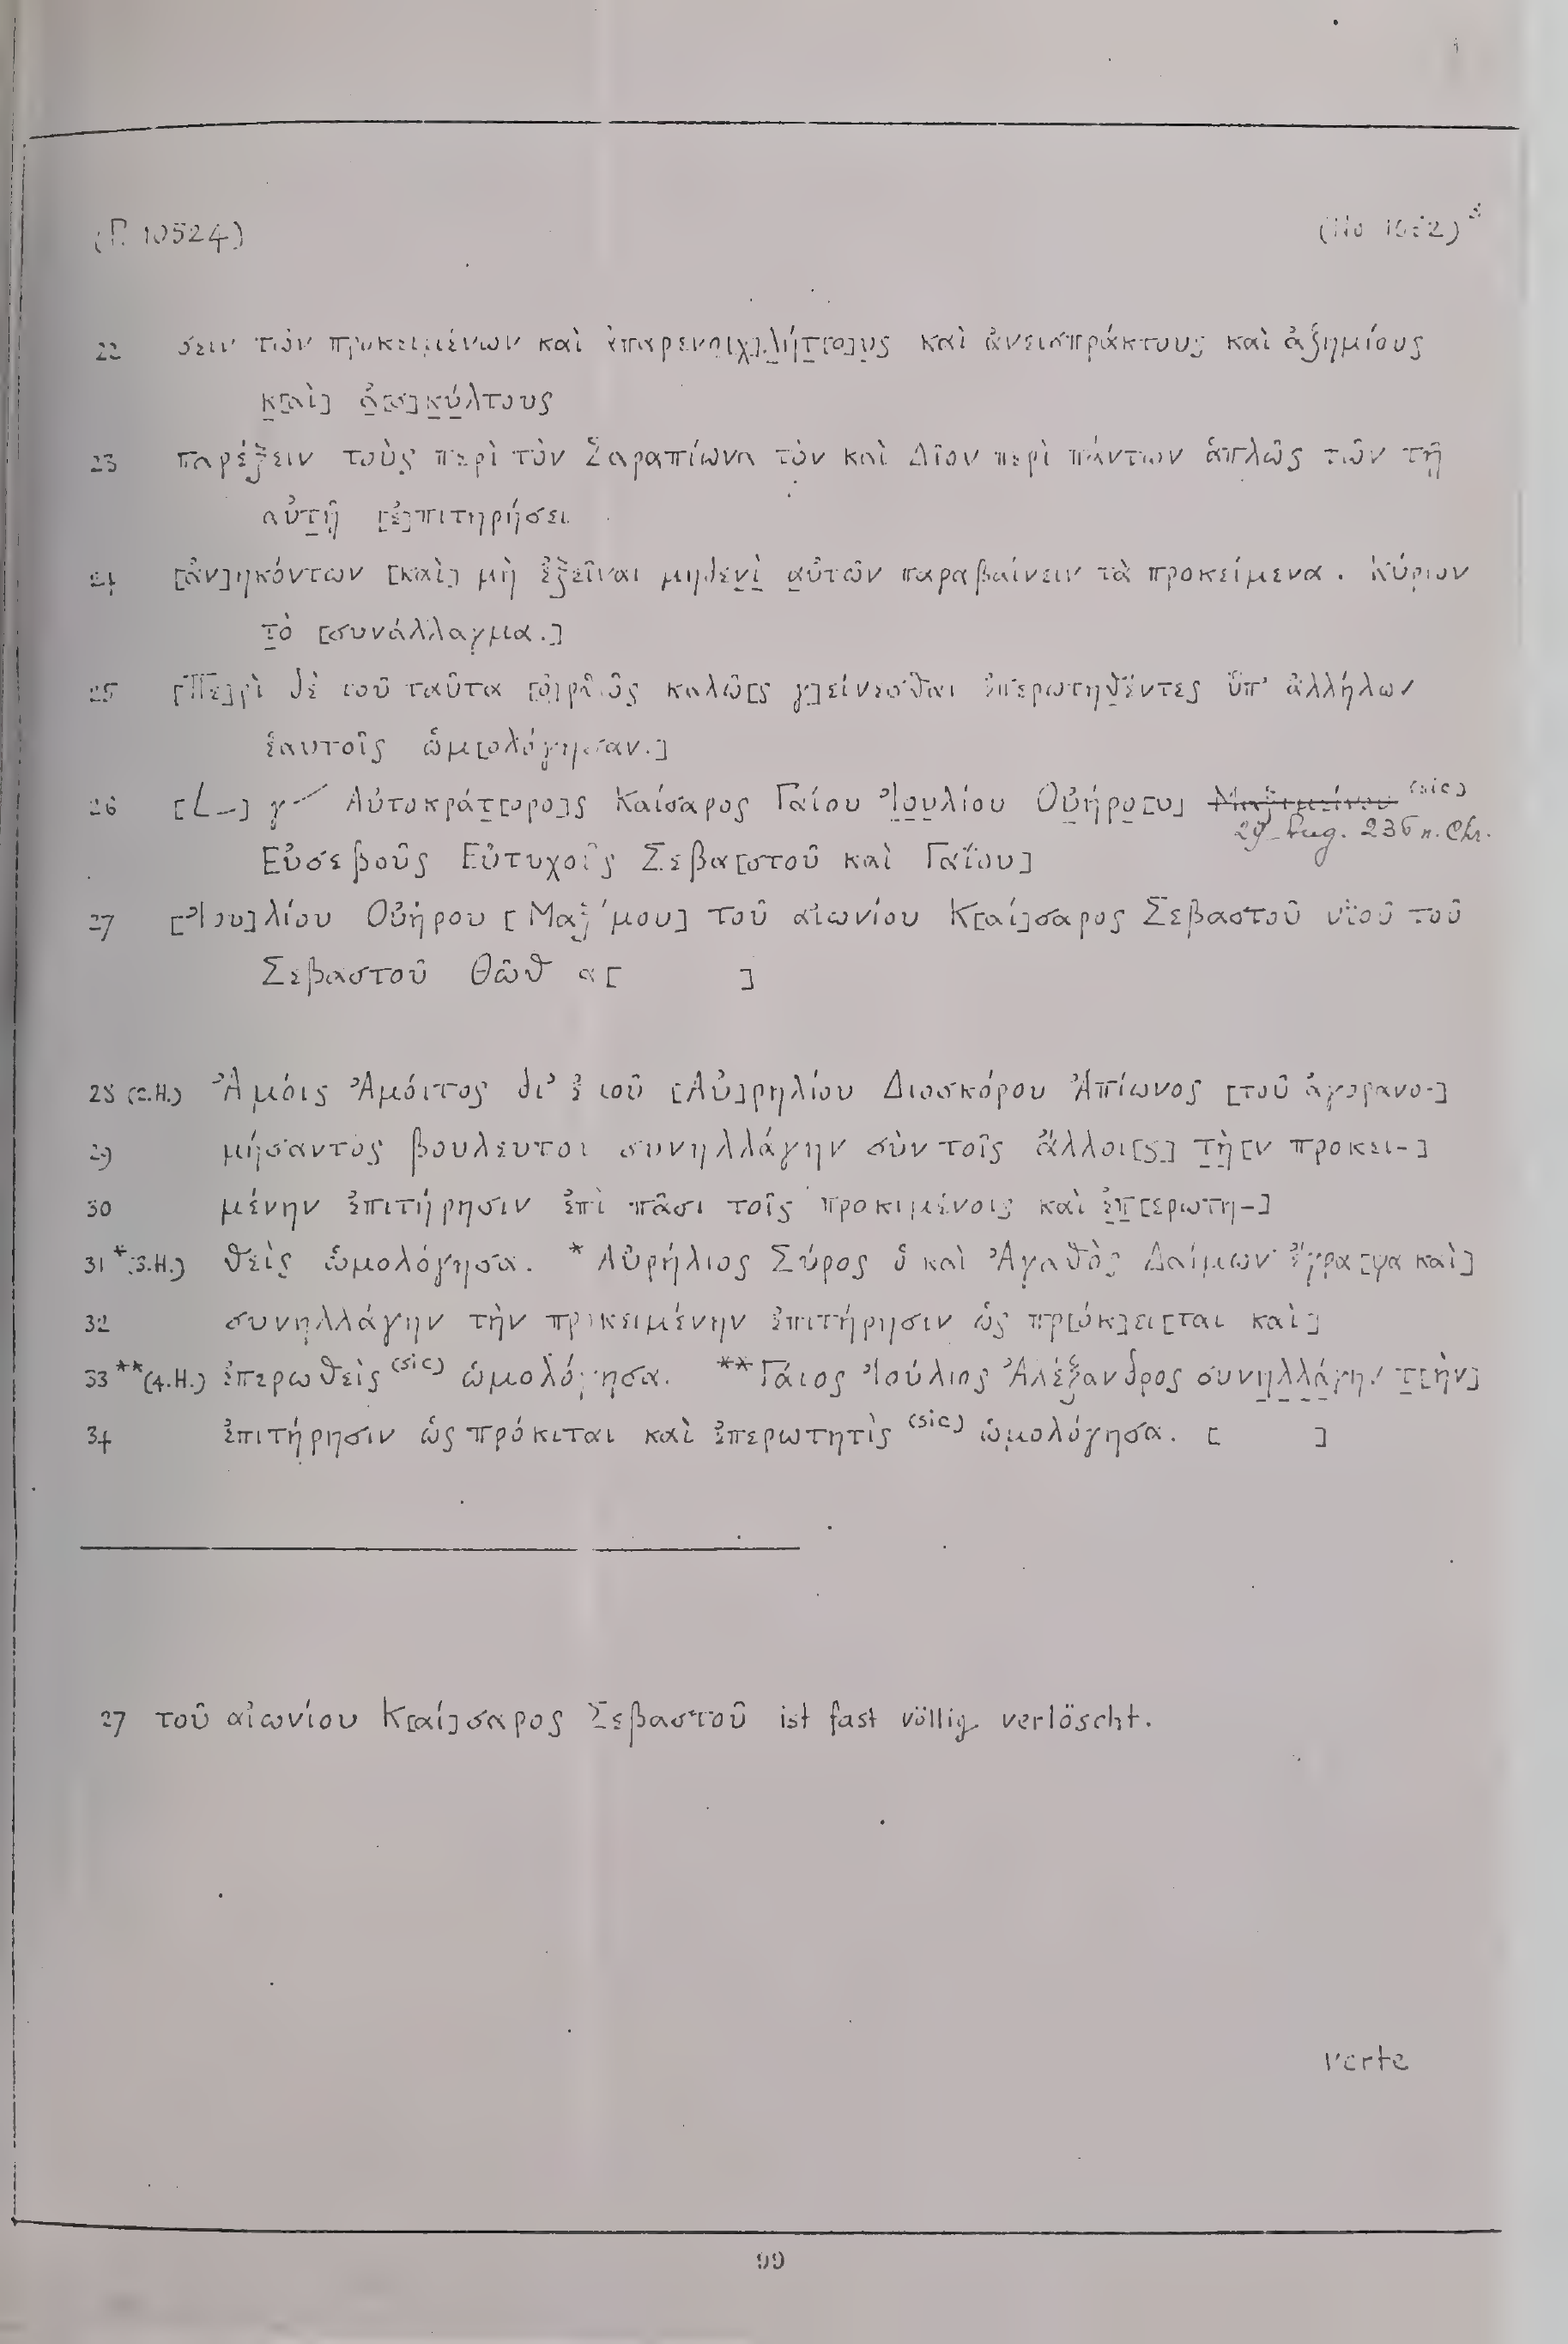 (P. 10524)
(No 1062)
22 σειν τῶν προκειμένων καὶ ἀπαρενο[ιχ]λ̣ή̣τ̣[ο]υ̣ς καὶ ἀνεισπράκτους καὶ ἀζημίους
κ̣[αὶ] ἀ̣[σ]κ̣ύ̣λτους
23 παρέξειν τοὺς περὶ τὸν Σαραπίωνα τὸν καὶ Δῖον περὶ πάντων ἁπλῶς τῶν τῇ
αὐτ̣ῇ [ἐ]πιτηρήσει
24 [ἀν]ηκόντων [καὶ] μὴ ἐξεῖναι μηδεν̣ὶ̣ α̣ὐτῶν παραβαίνειν τὰ προκείμενα. Κύριον
τ̣ὸ [συνάλλαγμα.]
25 [Πε]ρὶ δὲ τοῦ ταῦτα [ὀ]ρθῶς καλῶ[ς γ]είνεσθαι ἐπερωτηθ̣έντες ὑπ' ἀλλήλων
ἑαυτοῖς ὡμ[ολόγησαν.]
26 [L–] γ Αὐτοκράτ̣[ορο]ς Καίσαρος Γαίου Ἰο̣υ̣λίου Οὐ̣ήρο̣[υ] Μαξιμείνου (sic)
29. Aug. 236 n. Chr.
Εὐσεβοῦς Εὐτυχοῦς Σεβα[στοῦ καὶ Γαΐου]
27 [Ἰου]λίου Οὐήρου [Μαξίμου] τοῦ αἰωνίου Κ[αί]σαρος Σεβαστοῦ υἱοῦ τοῦ
Σεβαστοῦ Θὼθ α[ ]
28 (2.H.) Ἀμόις Ἀμόιτος δι' ἐμοῦ [Αὐ]ρηλίου Διοσκόρου Ἀπίωνος [τοῦ ἀγορανο-]
29 μήσαντος βουλευτοῦ συνηλλάγην σὺν τοῖς ἄλλοι[ς] τ̣ὴ̣[ν προκει-]
30 μένην ἐπιτήρησιν ἐπὶ πᾶσι τοῖς προκιμένοις καὶ ἐ̣π̣[ερωτη-]
31 * (3.H.) θεὶς ὡμολόγησα. * Αὐρήλιος Σύρος ὁ καὶ Ἀγαθὸς Δαίμων ἔγρα[ψα καὶ]
32 συνηλλάγην τὴν προκειμένην ἐπιτήρησιν ὡς πρ[όκ]ει[ται καὶ]
33 ** (4.H.) ἐπερωθεὶς (sic) ὡμολόγησα. ** Γάιος Ἰούλιος Ἀλέξανδρος συνη̣λ̣λ̣ά̣γην τ̣[ὴν]
34 ἐπιτήρησιν ὡς πρόκιται καὶ ἐπερωτητὶς (sic) ὡμολόγησα. [ ]
27 τοῦ αἰωνίου Κ[αί]σαρος Σεβαστοῦ ist fast völlig verlöscht.
verte
99